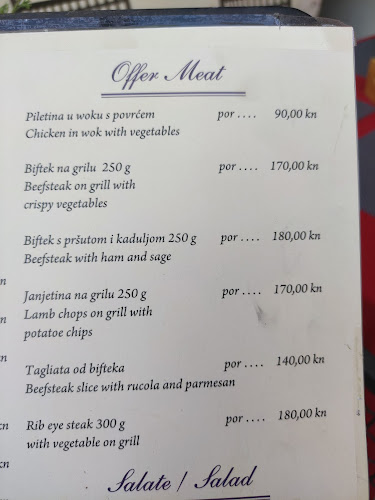 Offer Meat
Piletina u woku s povrćem por .... 90,00 kn
Chicken in wok with vegetables
Biftek na grilu 250 g por .... 170,00 kn
Beefsteak on grill with
crispy vegetables
Biftek s pršutom i kaduljom 250 g por .... 180,00 kn
Beefsteak with ham and sage
n
Janjetina na grilu 250 g por .... 170,00 kn
Lamb chops on grill with
n
potatoe chips
n
Tagliata od bifteka por .... 140,00 kn
Beefsteak slice with rucola and parmesan
kn
Rib eye steak 300 g por .... 180,00 kn
with vegetable on grill
kn
Salate / Salad